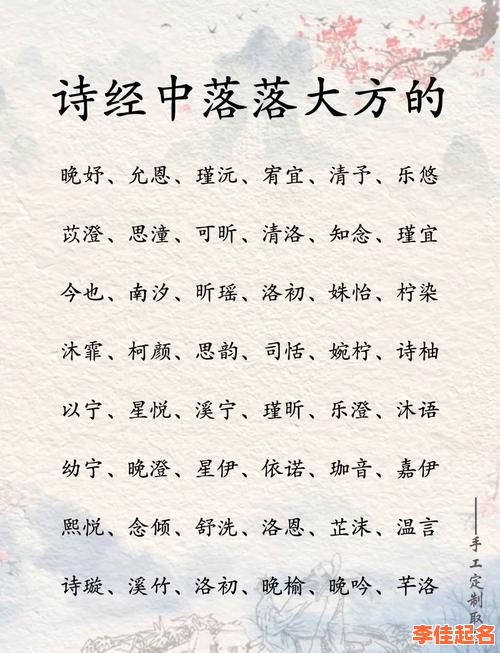 诗经中落落大方的
晚妤、允恩、瑾沅、宥宜、清予、乐悠
苡澄、思潼、可昕、清洛、知念、瑾宜
今也、南汐、昕瑶、洛初、姝怡、柠染
沐霏、柯颜、思韵、司恬、婉柠、诗柚
以宁、星悦、溪宁、瑾昕、乐澄、沐语
幼宁、晚澄、星伊、依诺、珈音、嘉伊
熙悦、念倾、舒洗、洛恩、芷沫、温言
诗璇、溪竹、洛初、晚榆、晚吟、芊洛
——手工定制取
李佳起名